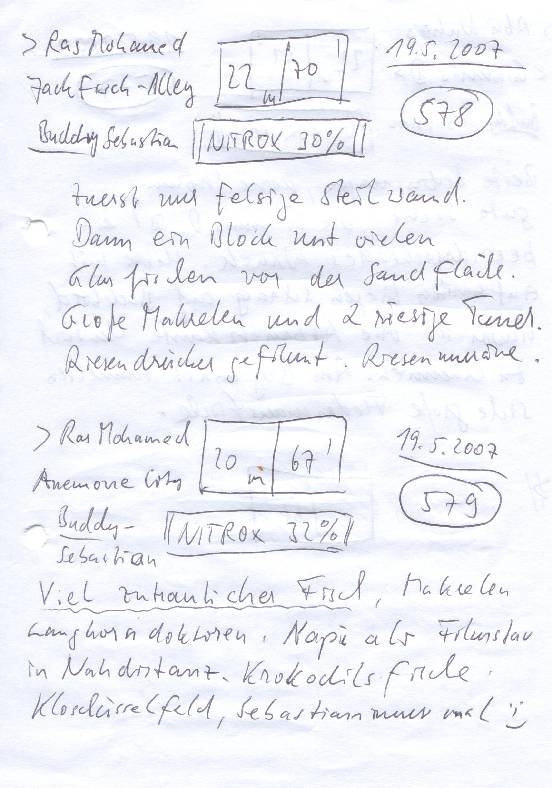 > Ras Mohamed
22 m 70'
19.5.2007
Jackfisch-Alley
578
Buddy Sebastian
NITROX 30%
Zuerst nur felsige Steilwand.
Dann ein Block mit vielen
Glasfischen vor der Sandfläche.
Große Makrelen und 2 riesige Tunas.
Riesendrücker gefilmt. Riesenmuräne.
> Ras Mohamed
20 m 67'
19.5.2007
Anemone City
579
Buddy-
Sebastian
NITROX 32%
Viel zutraulicher Fisch, Makrelen
Langhorndoktoren. Napi als Filmstar
in Nahdistanz. Krokodilsfische.
Kloschüsselfeld, Sebastian mal